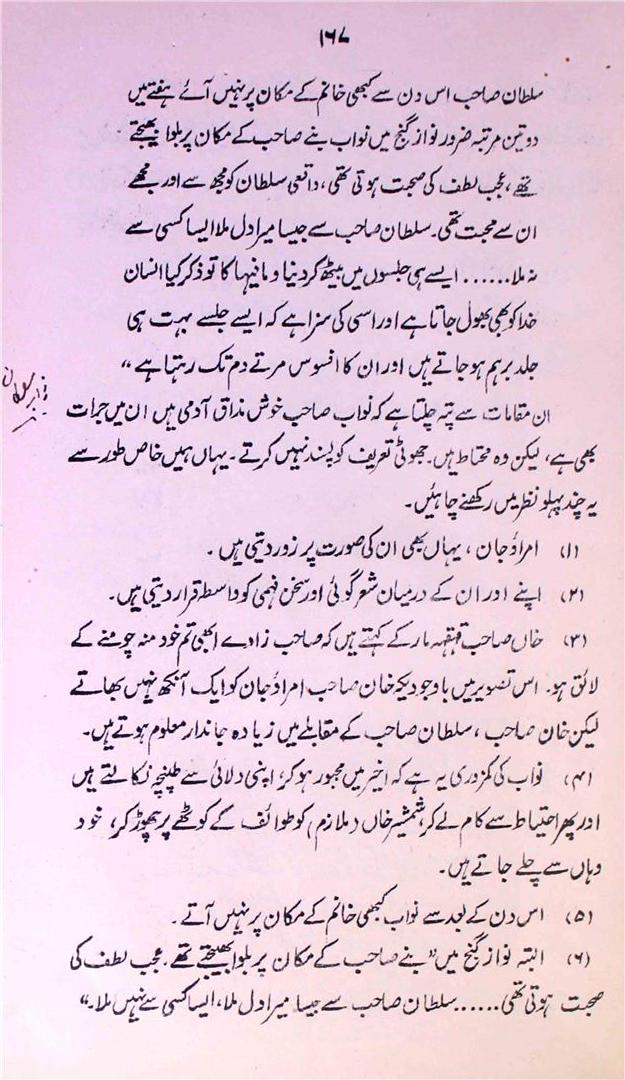 ۱۶۷
سلطان صاحب اس دن سے کبھی خانم کے مکان پر نہیں آئے ہفتے میں
دو تین مرتبہ ضرور نواز گنج میں نواب بنے صاحب کے مکان پر بلوا بھیجتے
تھے، عجب لطف کی صحبت ہوتی تھی، واقعی سلطان کو مجھ سے اور مجھے
ان سے محبت تھی۔ سلطان صاحب سے جیسا میرا دل ملا ایسا کسی سے
نہ ملا...... ایسے ہی جلسوں میں بیٹھ کر دنیا و مافیہا کا تو ذکر کیا انسان
خدا کو بھی بھول جاتا ہے اور اسی کی سزا ہے کہ ایسے جلسے بہت ہی
جلد برہم ہو جاتے ہیں اور ان کا افسوس مرتے دم تک رہتا ہے“
ان مقامات سے پتہ چلتا ہے کہ نواب صاحب خوش مذاق آدمی ہیں ان میں جرات
بھی ہے، لیکن وہ محتاط ہیں۔ جھوٹی تعریف کو پسند نہیں کرتے۔ یہاں ہمیں خاص طور سے
یہ چند پہلو نظر میں رکھنے چاہئیں۔
(۱) امراؤ جان، یہاں بھی ان کی صورت پر زور دیتی ہیں۔
(۲) اپنے اور ان کے درمیان شعر گوئی اور سخن فہمی کو واسطہ قرار دیتی ہیں۔
(۳) خاں صاحب قہقہہ مار کے کہتے ہیں کہ صاحب زادے ابھی تم خود منہ چومنے کے
لائق ہو۔ اس تصویر میں باوجودیکہ خان صاحب امراؤ جان کو ایک آنکھ نہیں بھاتے
لیکن خان صاحب، سلطان صاحب کے مقابلے میں زیادہ جاندار معلوم ہوتے ہیں۔
(۴) نواب کی کمزوری یہ ہے کہ اخیر میں مجبور ہو کر، اپنی دلائی سے طپنچہ نکالتے ہیں
اور پھر احتیاط سے کام لے کر، شمشیر خاں (ملازم) کو طوائف کے کوٹھے پر چھوڑ کر، خود
وہاں سے چلے جاتے ہیں۔
(۵) اس دن کے بعد سے نواب کبھی خانم کے مکان پر نہیں آتے۔
(۶) البتہ نواز گنج میں ”بنے صاحب کے مکان پر بلوا بھیجتے تھے۔ عجب لطف کی
صحبت ہوتی تھی...... سلطان صاحب سے جیسا میرا دل ملا، ایسا کسی سے نہیں ملا۔“